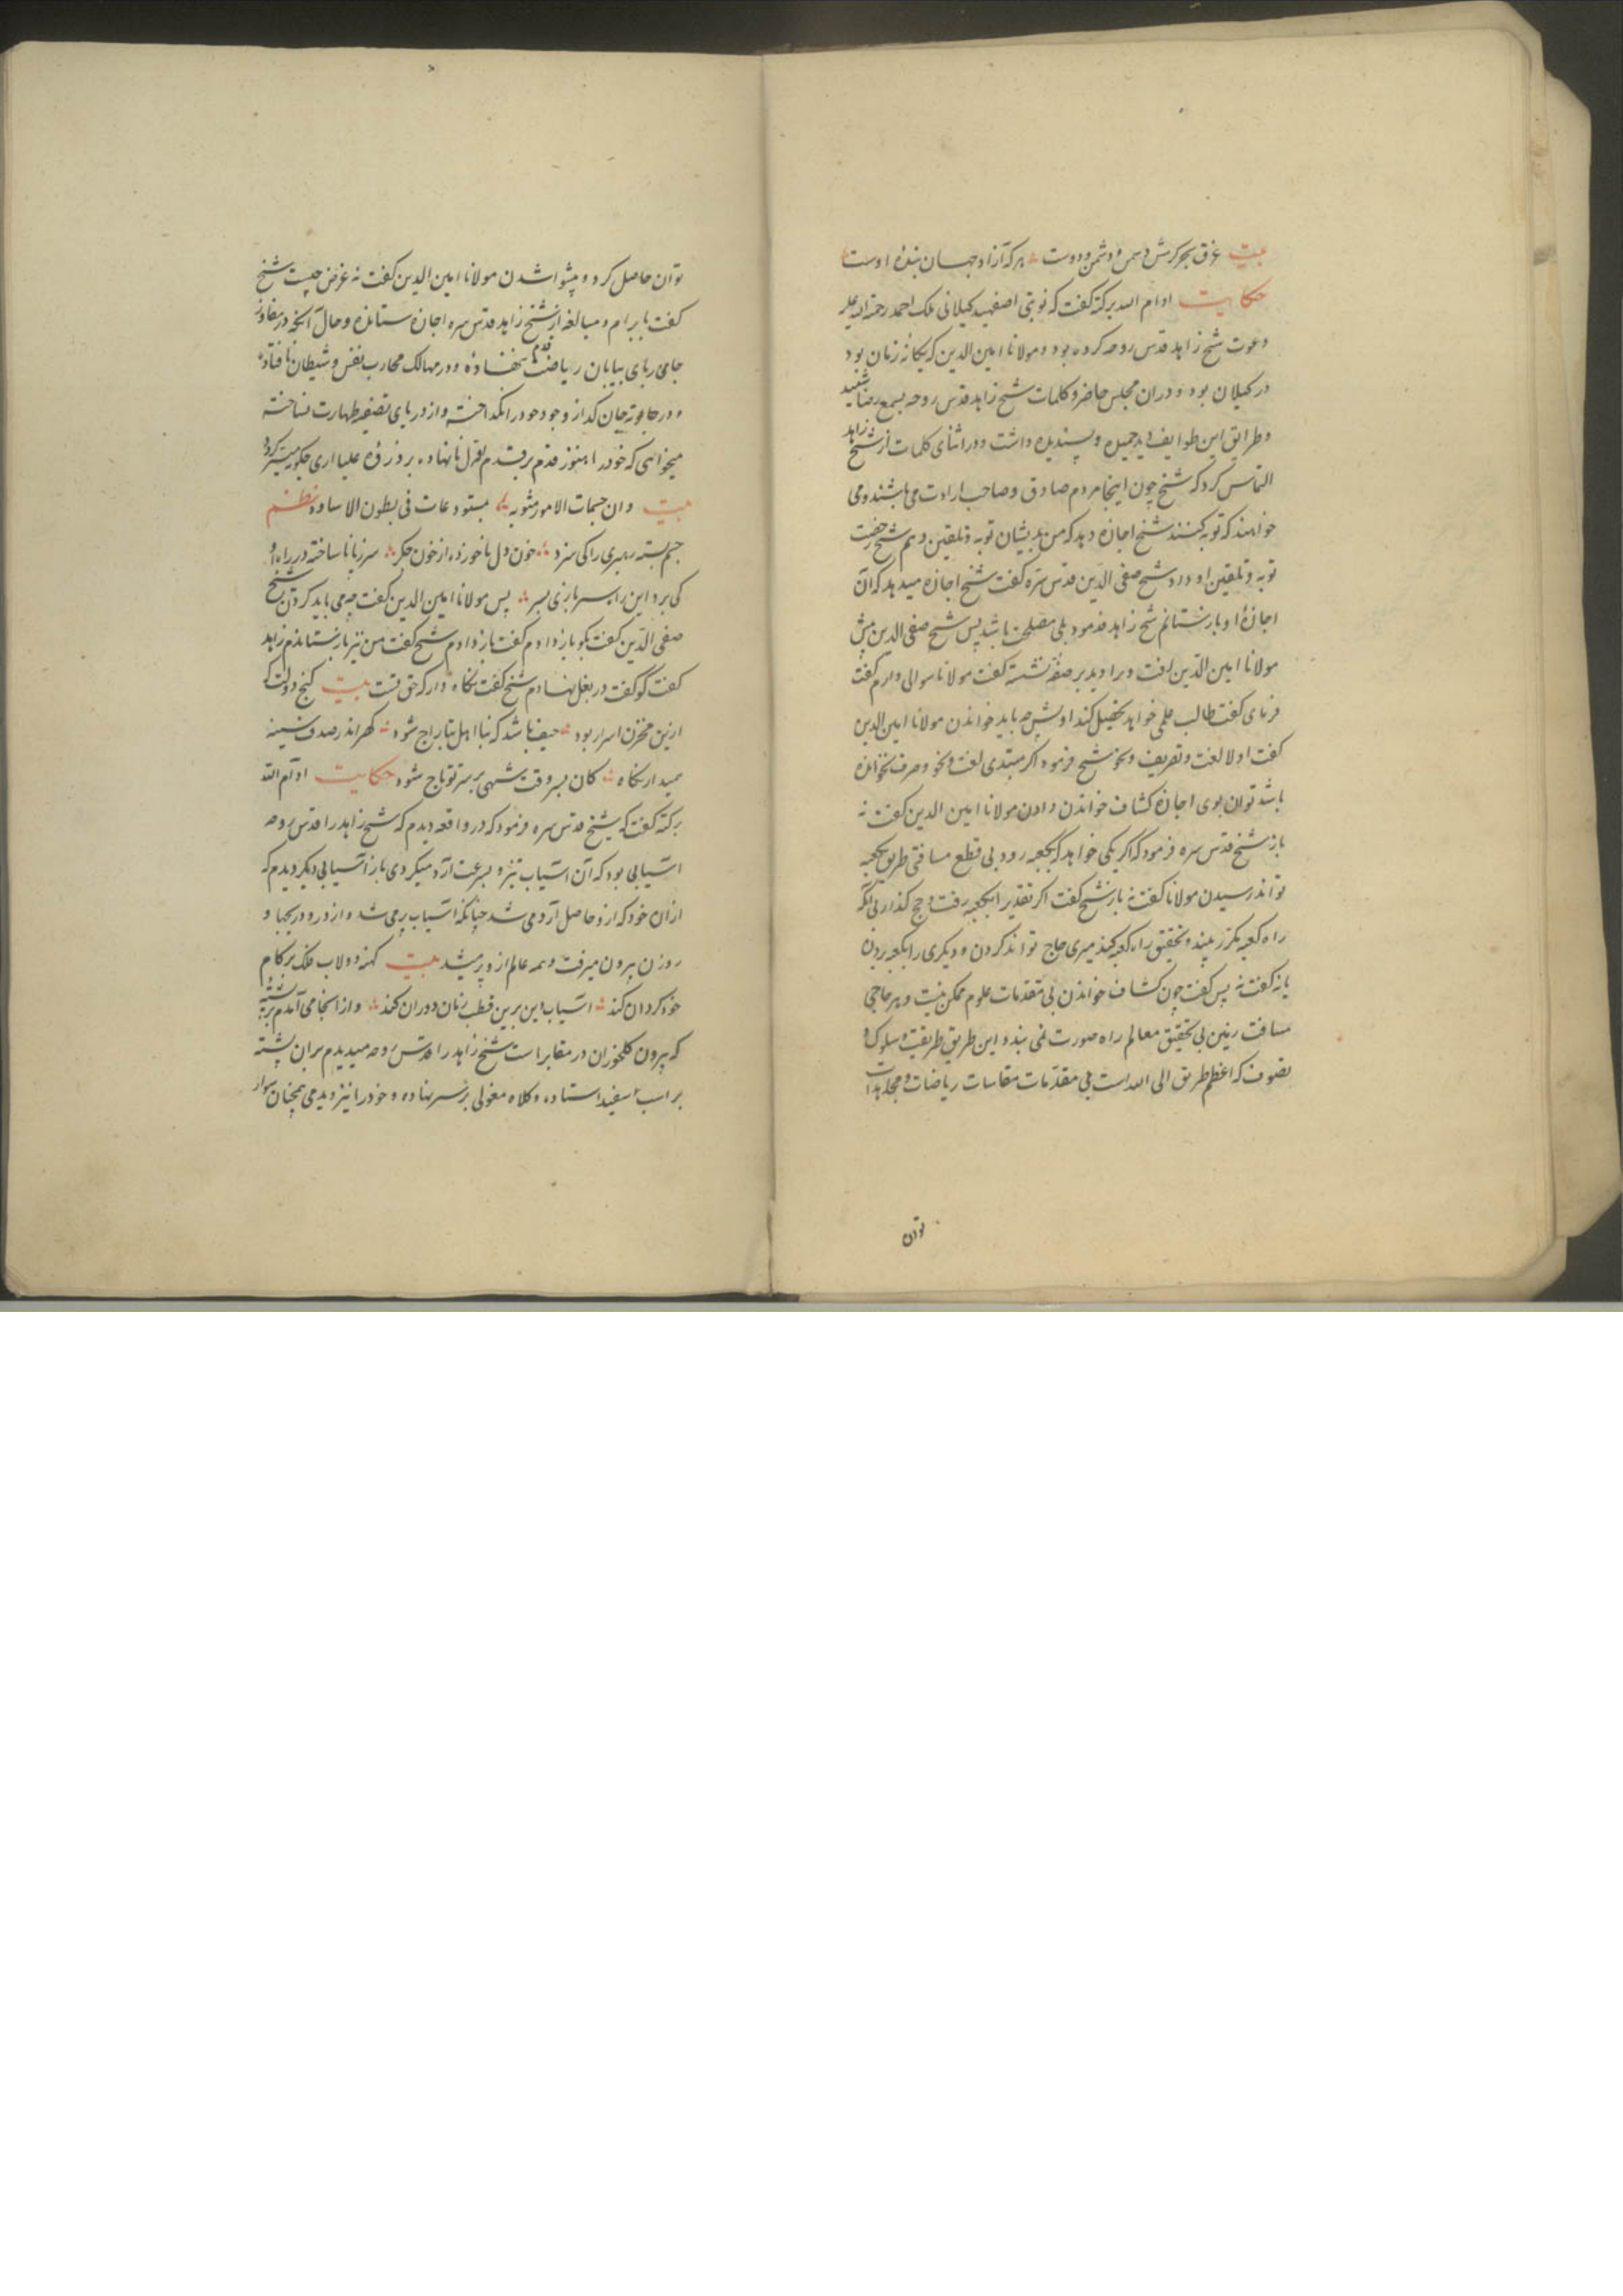 بیت غرق بحر کرمش دشمن و دوست هر که آزاد جهان بندهٔ اوست
حکایت ادام الله برکته گفت که نوبتی اصفهبد کیلانی ملک احمد رحمة الله علیه
دعوت شیخ زاهد قدس روحه کرده بود و مولانا امین الدین که یکانهٔ زمان بود
در کیلان بود و در ان مجلس حاضر و کلمات شیخ زاهد قدس روحه بسمع رضا شنید
و طرایق این طوایف دید جمیله و پسندیده داشت و در اثنای کلمات از شیخ زاهد
التماس کرد که شیخ چون اینجا مردم صادق و صاحب ارادت می باشند و می
خواهند که توبه کنند شیخ اجازه دهد که من بدیشان توبه و تلقین دهم شیخ رخصت
توبه و تلقین او داد شیخ صفی الدین قدس سره گفت شیخ اجازه میدهد که آن
اجازهٔ او باز ستانم شیخ زاهد فرمود بلی مصلحت باشد پس شیخ صفی الدین پیش
مولانا امین الدین رفت و برا دید بر صفه نشسته گفت مولانا سوالی دارم گفت
فرمای گفت طالب علمی خواهد تحصیل کند اولش چه باید خواندن مولانا امین الدین
گفت اولا لغت و تصریف و نحو شیخ فرمود اکر مبتدی لغت و نحو و صرف نخوانده
باشد توان بوی اجازه کشاف خواندن دادن مولانا امین الدین گفت نه
باز شیخ قدس سره فرمود که اکر یکی خواهد که بکعبه رود بی قطع مسافتی طریق بکعبه
تواند رسیدن مولانا گفت نه باز شیخ گفت اکر تقدیرا بکعبه رفت و حج کذارد بی آنکه
راه کعبه مکرر بیند و تحقیق راه کعبه کند میری حاج تواند کردن و دیکری را بکعبه بردن
یا نه گفت نه پس گفت چون کشاف خواندن بی مقدمات علوم ممکن نیست و میر حاجی
مسافت زمین بی تحقیق معالم راه صورت نمی بندد این طریق طریقت و سلوک و
تصوف که اعظم طریق الی الله است بی مقدمات مقاسات ریاضات و مجاهدات
توان
توان حاصل کرد و پیشوا شدن مولانا امین الدین گفت نه غرض چیست شیخ
گفت با برام و مبالغه از شیخ زاهد قدس سره اجازه ستانده و حال آنکه در مفاوز
جامی ربای بیابان ریاضت قدم ننهاده و در مهالک محارب نفس و شیطان نافتاده
و در جان کداز وجود خود را نکداخته و از دریای تصفیه طهارت نساخته
میخواهی که خود را هنوز قدم بر قدم نانهاده بر ذروه علیا اری چکونه میسر کردد
بیت و ان جسمات الامور مثوبه مستودعات فی بطون الاساود نظم
چشم بسته رهبری را کی سزد خون دل ناخورده از خون جکر سر زپا ناساخته در راه او
کی برد این راه بسربازی بسر پس مولانا امین الدین گفت چه می باید کردن شیخ
صفی الدین گفت بکو باز دادم گفت باز دادم شیخ گفت من نیز باز ستاندم زاهد
گفت کو گفت در بغل نهادم شیخ گفت نکاه دار که حق تست بیت کنج دولت که
ازین مخزن اسرار بود حیف باشد که بنا اهل بتاراج شود کهر اندر صدف سینه
میدار نکاه کان بسر وقت شهی بر سر تو تاج شود حکایت ادام الله
برکته گفت که شیخ قدس سره فرمود که در واقعه دیدم که شیخ زاهد را قدس روحه
آسیابی بود که آن آسیاب تیز و بسرعت آرد میکردی باز آسیابی دیکر دیدم که
ازان خود که ازو حاصل آرد می شد چنانکه آسیاب پر می شد و از در و دریچها و
روزن بیرون میرفت و همه عالم ازو پر میشد بیت کهنه دولاب فلک بر کام
خود کردان کند آسیاب دین برین قطب زمان دوران کند و از انجا می آمدم بر پشته
که بیرون کلخوران در مقابر است شیخ زاهد را قدس روحه میدیدم بران پشته
بر اسب سفید استاده و کلاه مغولی بر سر نهاده و خود را نیز دیدمی همچنان سوار